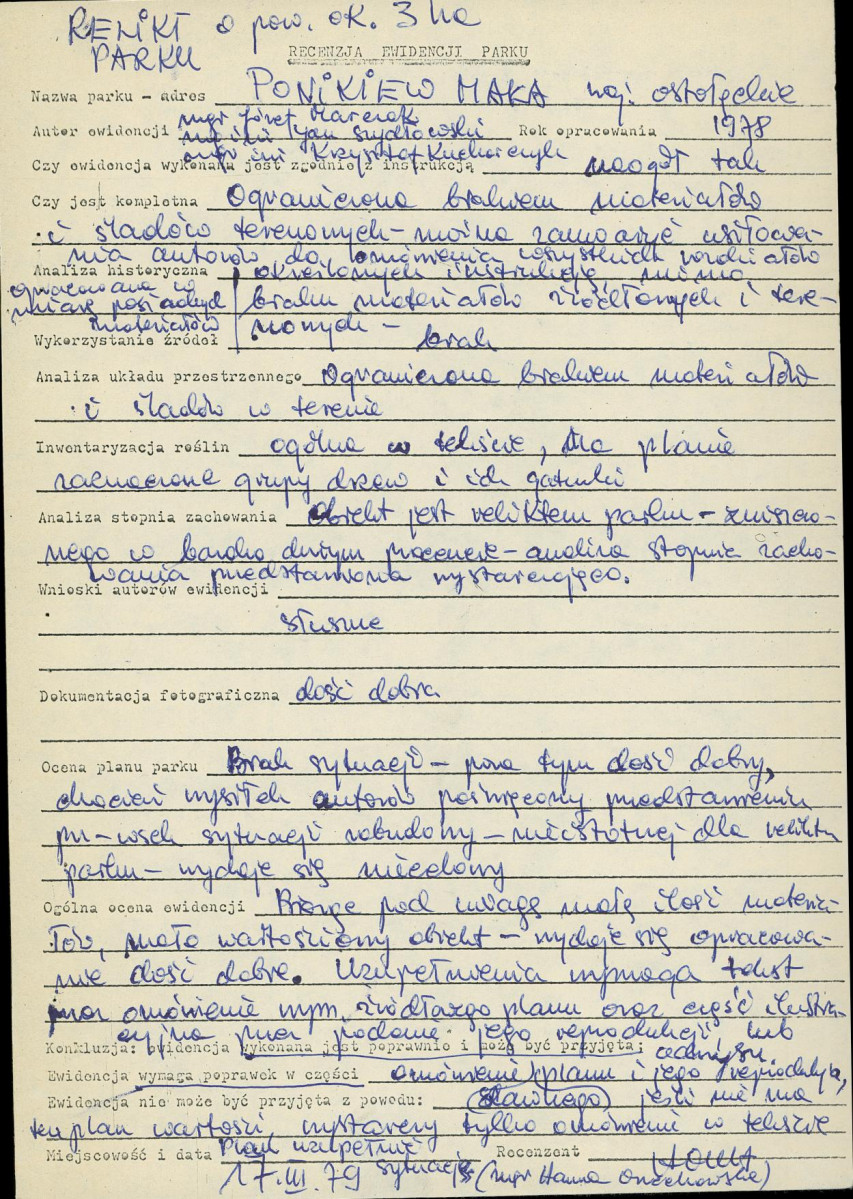 RELIKT o pow. ok. 3 ha
PARKU
RECENZJA EWIDENCJI PARKU
Nazwa parku - adres PONIKIEW MAŁA woj. ostrołęckie
mgr Józef Marciak
Autor ewidencji mgr inż Jan Szydłowski Rok opracowania 1978
mgr inż Krzysztof Kucharczyk
Czy ewidencja wykonana jest zgodnie z instrukcją naogół tak
Czy jest kompletna Ograniczona brakiem materiałów
i śladów terenowych - można zauważyć usiłowa-
nia autorów do omówienia wszystkich rozdziałów
Analiza historyczna określonych instrukcją, mimo
opracowana w
miarę posiadanych braku materiałów źródłowych i tere-
materiałów nowych -
Wykorzystanie źródeł brak
Analiza układu przestrzennego Ograniczona brakiem materiałów
i śladów w terenie
Inwentaryzacja roślin ogólna w tekście, na planie
zaznaczone grupy drzew i ich gatunki
Analiza stopnia zachowania Obiekt jest reliktem parku - zniszczo-
nego w bardzo dużym procencie - analiza stopnia zacho-
wania przedstawiona wystarczająco.
Wnioski autorów ewidencji
słuszne
Dokumentacja fotograficzna dość dobra
Ocena planu parku Brak sytuacji - poza tym dość dobry,
chociaż wysiłek autorów poświęcony przedstawieniu
sytuacji zabudowy - nieistotnej dla reliktu
parku - wydaje się niecelowy
Ogólna ocena ewidencji Biorąc pod uwagę małą ilość materia-
łów, mało wartościowy obiekt - wydaje się opracowa-
nie dość dobre. Uzupełnienia wymaga tekst
przez omówienie wym. źródłowego planu oraz część ilustra-
cyjna przez podanie jego reprodukcji lub
Konkluzja: ewidencja wykonana jest poprawnie i może być przyjęta; odrysu
Ewidencja wymaga poprawek w części omówienie planu i jego reprodukcja,
Ewidencja nie może być przyjęta z powodu: dawnego, jeśli nie ma
ten plan wartości, wystarczy tylko omówienie w tekście
Miejscowość i data Plan uzupełnić Recenzent
17.III.79 sytuację (mgr Hanna Orzechowska)